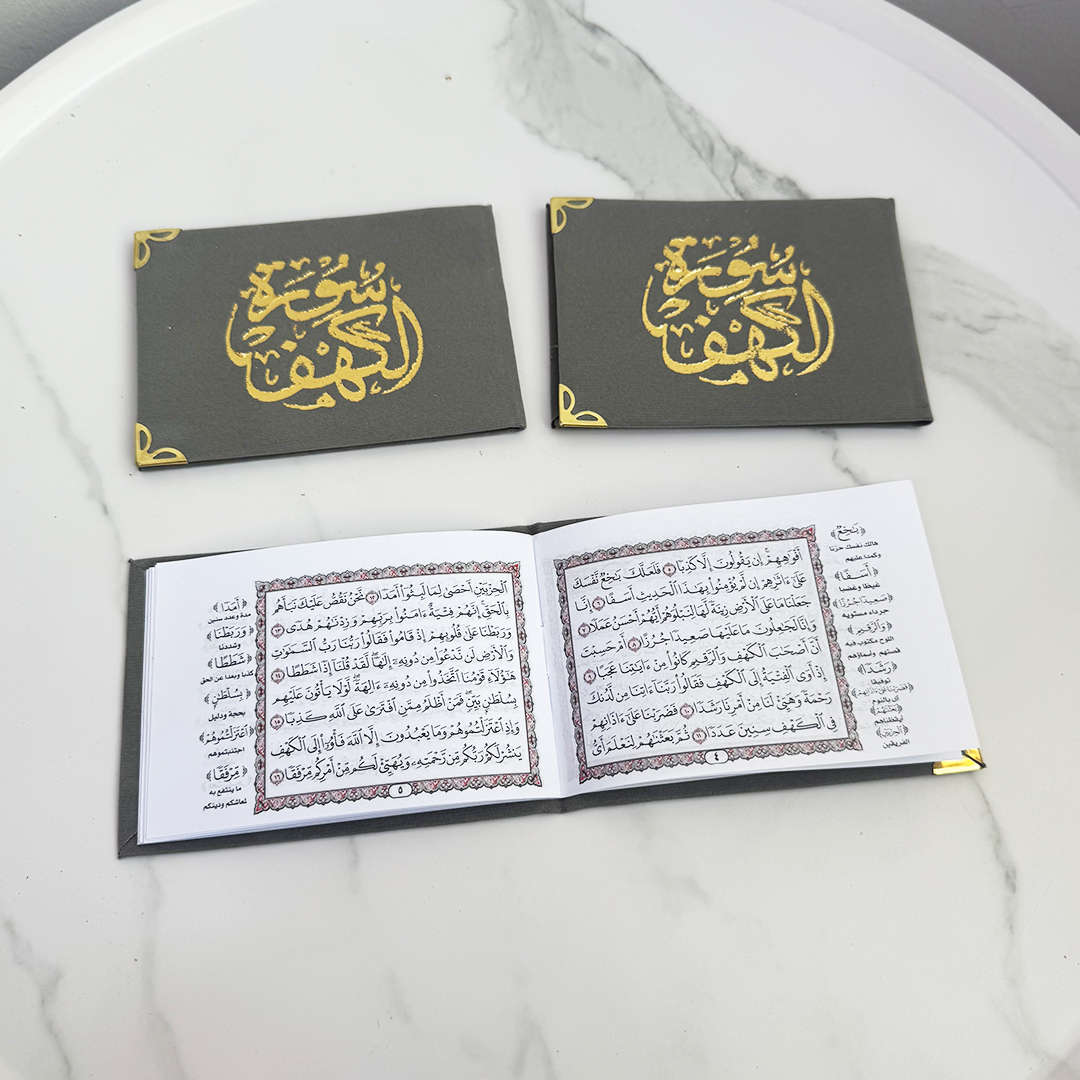 سُورَةُ
الكَهْف
سُورَةُ
الكَهْف
أَفْوَٰهِهِمْ ۚ إِن يَقُولُونَ إِلَّا كَذِبًا ٥ فَلَعَلَّكَ بَٰخِعٌ نَّفْسَكَ
عَلَىٰٓ ءَاثَٰرِهِمْ إِن لَّمْ يُؤْمِنُوا۟ بِهَٰذَا ٱلْحَدِيثِ أَسَفًا ٦ إِنَّا
جَعَلْنَا مَا عَلَى ٱلْأَرْضِ زِينَةً لَّهَا لِنَبْلُوَهُمْ أَيُّهُمْ أَحْسَنُ عَمَلًا ٧
وَإِنَّا لَجَٰعِلُونَ مَا عَلَيْهَا صَعِيدًا جُرُزًا ٨ أَمْ حَسِبْتَ
أَنَّ أَصْحَٰبَ ٱلْكَهْفِ وَٱلرَّقِيمِ كَانُوا۟ مِنْ ءَايَٰتِنَا عَجَبًا ٩
إِذْ أَوَى ٱلْفِتْيَةُ إِلَى ٱلْكَهْفِ فَقَالُوا۟ رَبَّنَآ ءَاتِنَا مِن لَّدُنكَ
رَحْمَةً وَهَيِّئْ لَنَا مِنْ أَمْرِنَا رَشَدًا ١٠ فَضَرَبْنَا عَلَىٰٓ ءَاذَانِهِمْ
فِى ٱلْكَهْفِ سِنِينَ عَدَدًا ١١ ثُمَّ بَعَثْنَٰهُمْ لِنَعْلَمَ أَىُّ
٤
﴿بَٰخِعٌ﴾
هالك نفسك حزنا
وكمدا عليهم
﴿أَسَفًا﴾
غيظا وغضبا
﴿صَعِيدًا جُرُزًا﴾
جرداء مستويه
﴿وَٱلرَّقِيمِ﴾
اللوح مكتوب فيه
قصتهم وأسماؤهم
﴿رَشَدًا﴾
توفيقا
﴿فَضَرَبْنَا عَلَىٰٓ ءَاذَانِهِمْ﴾
اى بالنوم
﴿بَعَثْنَٰهُمْ﴾
أيقظناهم
﴿ٱلْحِزْبَيْنِ﴾
الفريقين
ٱلْحِزْبَيْنِ أَحْصَىٰ لِمَا لَبِثُوٓا۟ أَمَدًا ١٢ نَّحْنُ نَقُصُّ عَلَيْكَ نَبَأَهُم
بِٱلْحَقِّ ۚ إِنَّهُمْ فِتْيَةٌ ءَامَنُوا۟ بِرَبِّهِمْ وَزِدْنَٰهُمْ هُدًى ١٣
وَرَبَطْنَا عَلَىٰ قُلُوبِهِمْ إِذْ قَامُوا۟ فَقَالُوا۟ رَبُّنَا رَبُّ ٱلسَّمَٰوَٰتِ
وَٱلْأَرْضِ لَن نَّدْعُوَا۟ مِن دُونِهِۦٓ إِلَٰهًا ۖ لَّقَدْ قُلْنَآ إِذًا شَطَطًا ١٤
هَٰٓؤُلَآءِ قَوْمُنَا ٱتَّخَذُوا۟ مِن دُونِهِۦٓ ءَالِهَةً ۖ لَّوْلَا يَأْتُونَ عَلَيْهِم
بِسُلْطَٰنٍۭ بَيِّنٍ ۖ فَمَنْ أَظْلَمُ مِمَّنِ ٱفْتَرَىٰ عَلَى ٱللَّهِ كَذِبًا ١٥
وَإِذِ ٱعْتَزَلْتُمُوهُمْ وَمَا يَعْبُدُونَ إِلَّا ٱللَّهَ فَأْوُۥٓا۟ إِلَى ٱلْكَهْفِ
يَنشُرْ لَكُمْ رَبُّكُم مِّن رَّحْمَتِهِۦ وَيُهَيِّئْ لَكُم مِّنْ أَمْرِكُم مِّرْفَقًا ١٦
٥
﴿أَمَدًا﴾
مدة وعدد سنين
﴿وَرَبَطْنَا﴾
وشددنا
﴿شَطَطًا﴾
كذبا وبعدا عن الحق
﴿بِسُلْطَٰنٍ﴾
بحجة ودليل
﴿ٱعْتَزَلْتُمُوهُمْ﴾
اجتنبتموهم
﴿مِّرْفَقًا﴾
ما ينتفع به
لمعاشكم ودينكم